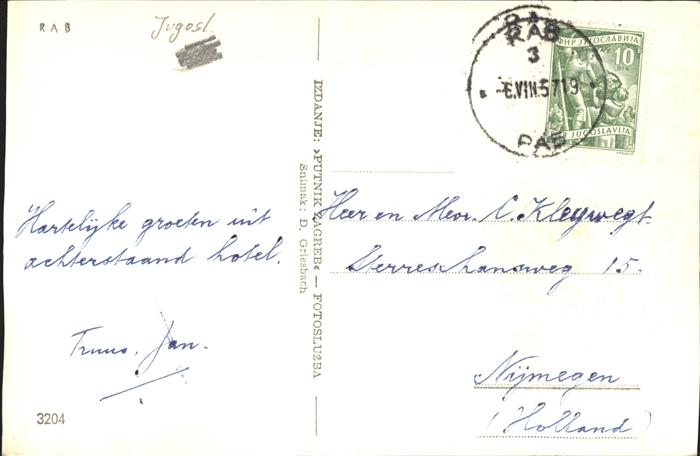 RAB
Jugosl.
Hartelijke groeten uit
achterstaand hotel.
Truus, Jan.
3204
IZDANJE: »PUTNIK ZAGREB« — FOTOSLUŽBA
Snimak: D. Griesbach
RAB
3
-6.VIII.57 19
RAB
ФНР ЈУГОСЛАВИЈА
10
DIN
JUGOSLAVIJA
Heer en Mevr. C. Kleijwegt.
Sterreschansweg 15.
Nijmegen
(Holland)